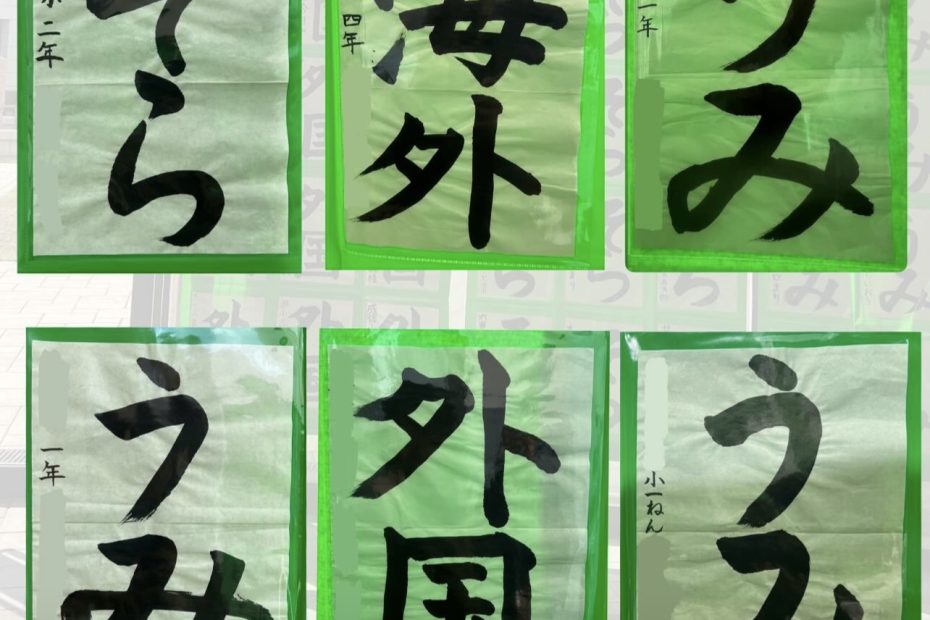 そら
小二年
海外
四年
うみ
一年
うみ
一年
外国
うみ
小一ねん